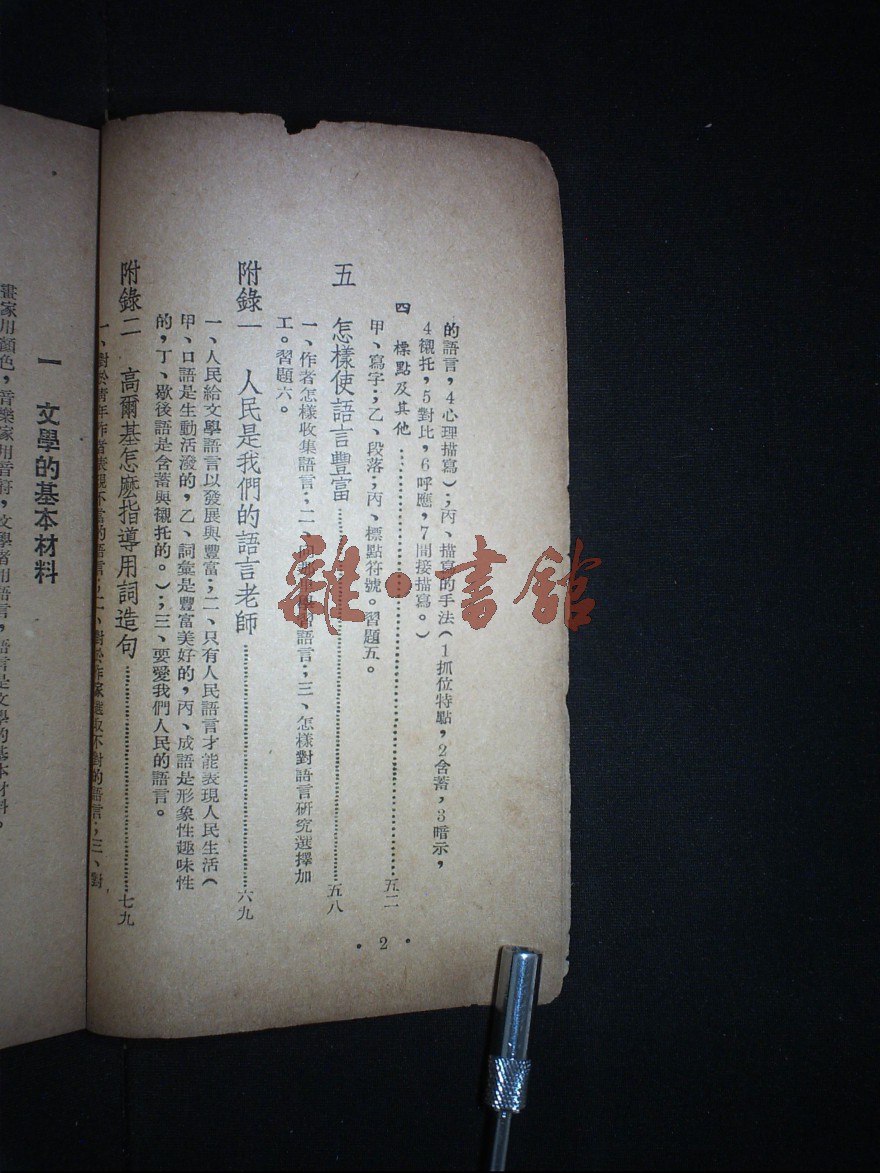 的語言，4心理描寫）；丙、描寫的手法（1抓位特點，2含蓄，3暗示，
4襯托，5對比，6呼應，7間接描寫。）
四 標點及其他…………五二
甲、寫字；乙、段落；丙、標點符號。習題五。
五 怎樣使語言豐富…………五八
一、作者怎樣收集語言；二、語言；三、怎樣對語言研究選擇加
工。習題六。
附錄一 人民是我們的語言老師…………六九
一、人民給文學語言以發展與豐富；二、只有人民語言才能表現人民生活（
甲、口語是生動活潑的，乙、詞彙是豐富美好的，丙、成語是形象性趣味性
的，丁、歇後語是含蓄與襯托的。）；三、要愛我們人民的語言。
附錄二 高爾基怎麼指導用詞造句…………七九
一、對於青年作者表現不當的語言；二、對於作家選取不對的語言；三、對
• 2 •
一 文學的基本材料
畫家用顏色，音樂家用音符，文學者用語言，語言是文學的基本材料。
雜·書館